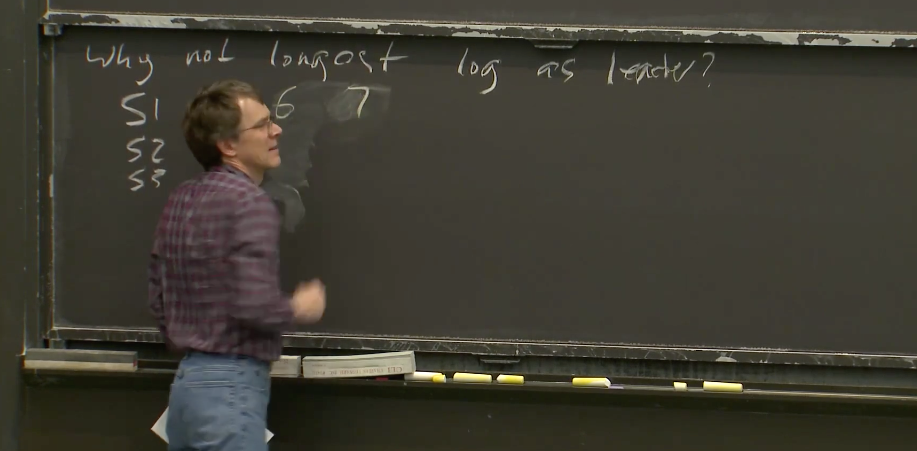 Why not longest log as leader?
S1 6 7
S2
S3